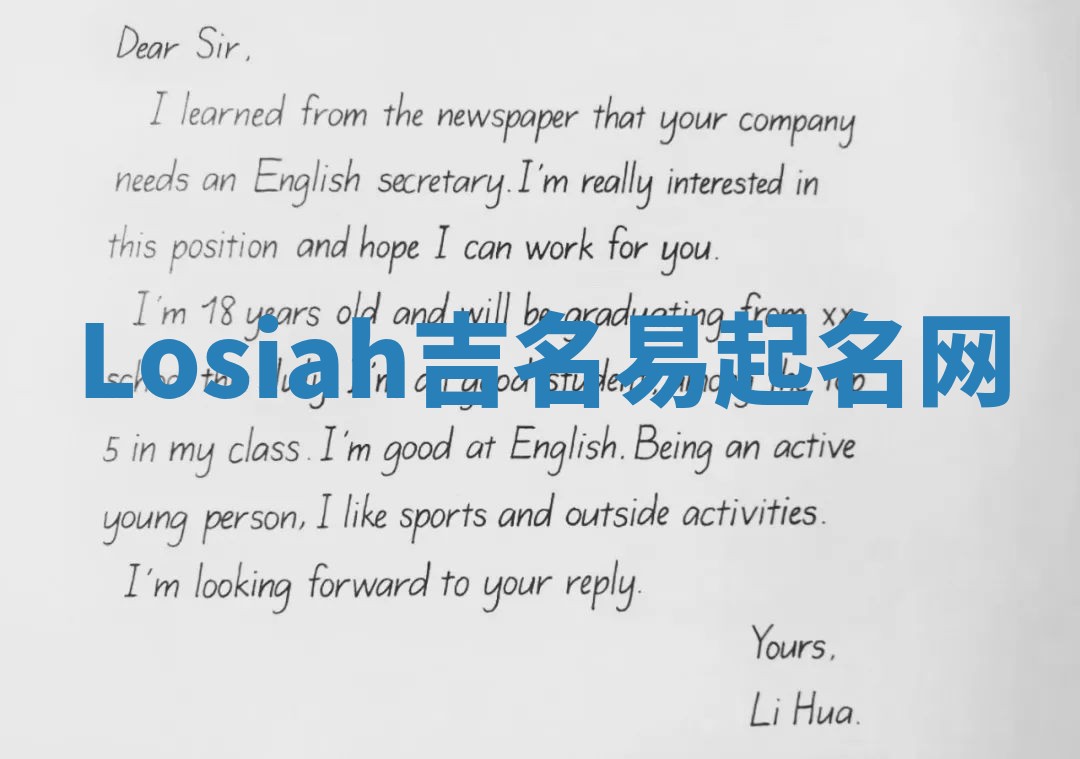 Dear Sir,
I learned from the newspaper that your company
needs an English secretary. I'm really interested in
this position and hope I can work for you.
I'm 18 years old and will be graduating from xx
Losiah吉名易起名网
school this July. I'm a good student, among the top
5 in my class. I'm good at English. Being an active
young person, I like sports and outside activities.
I'm looking forward to your reply.
Yours,
Li Hua.